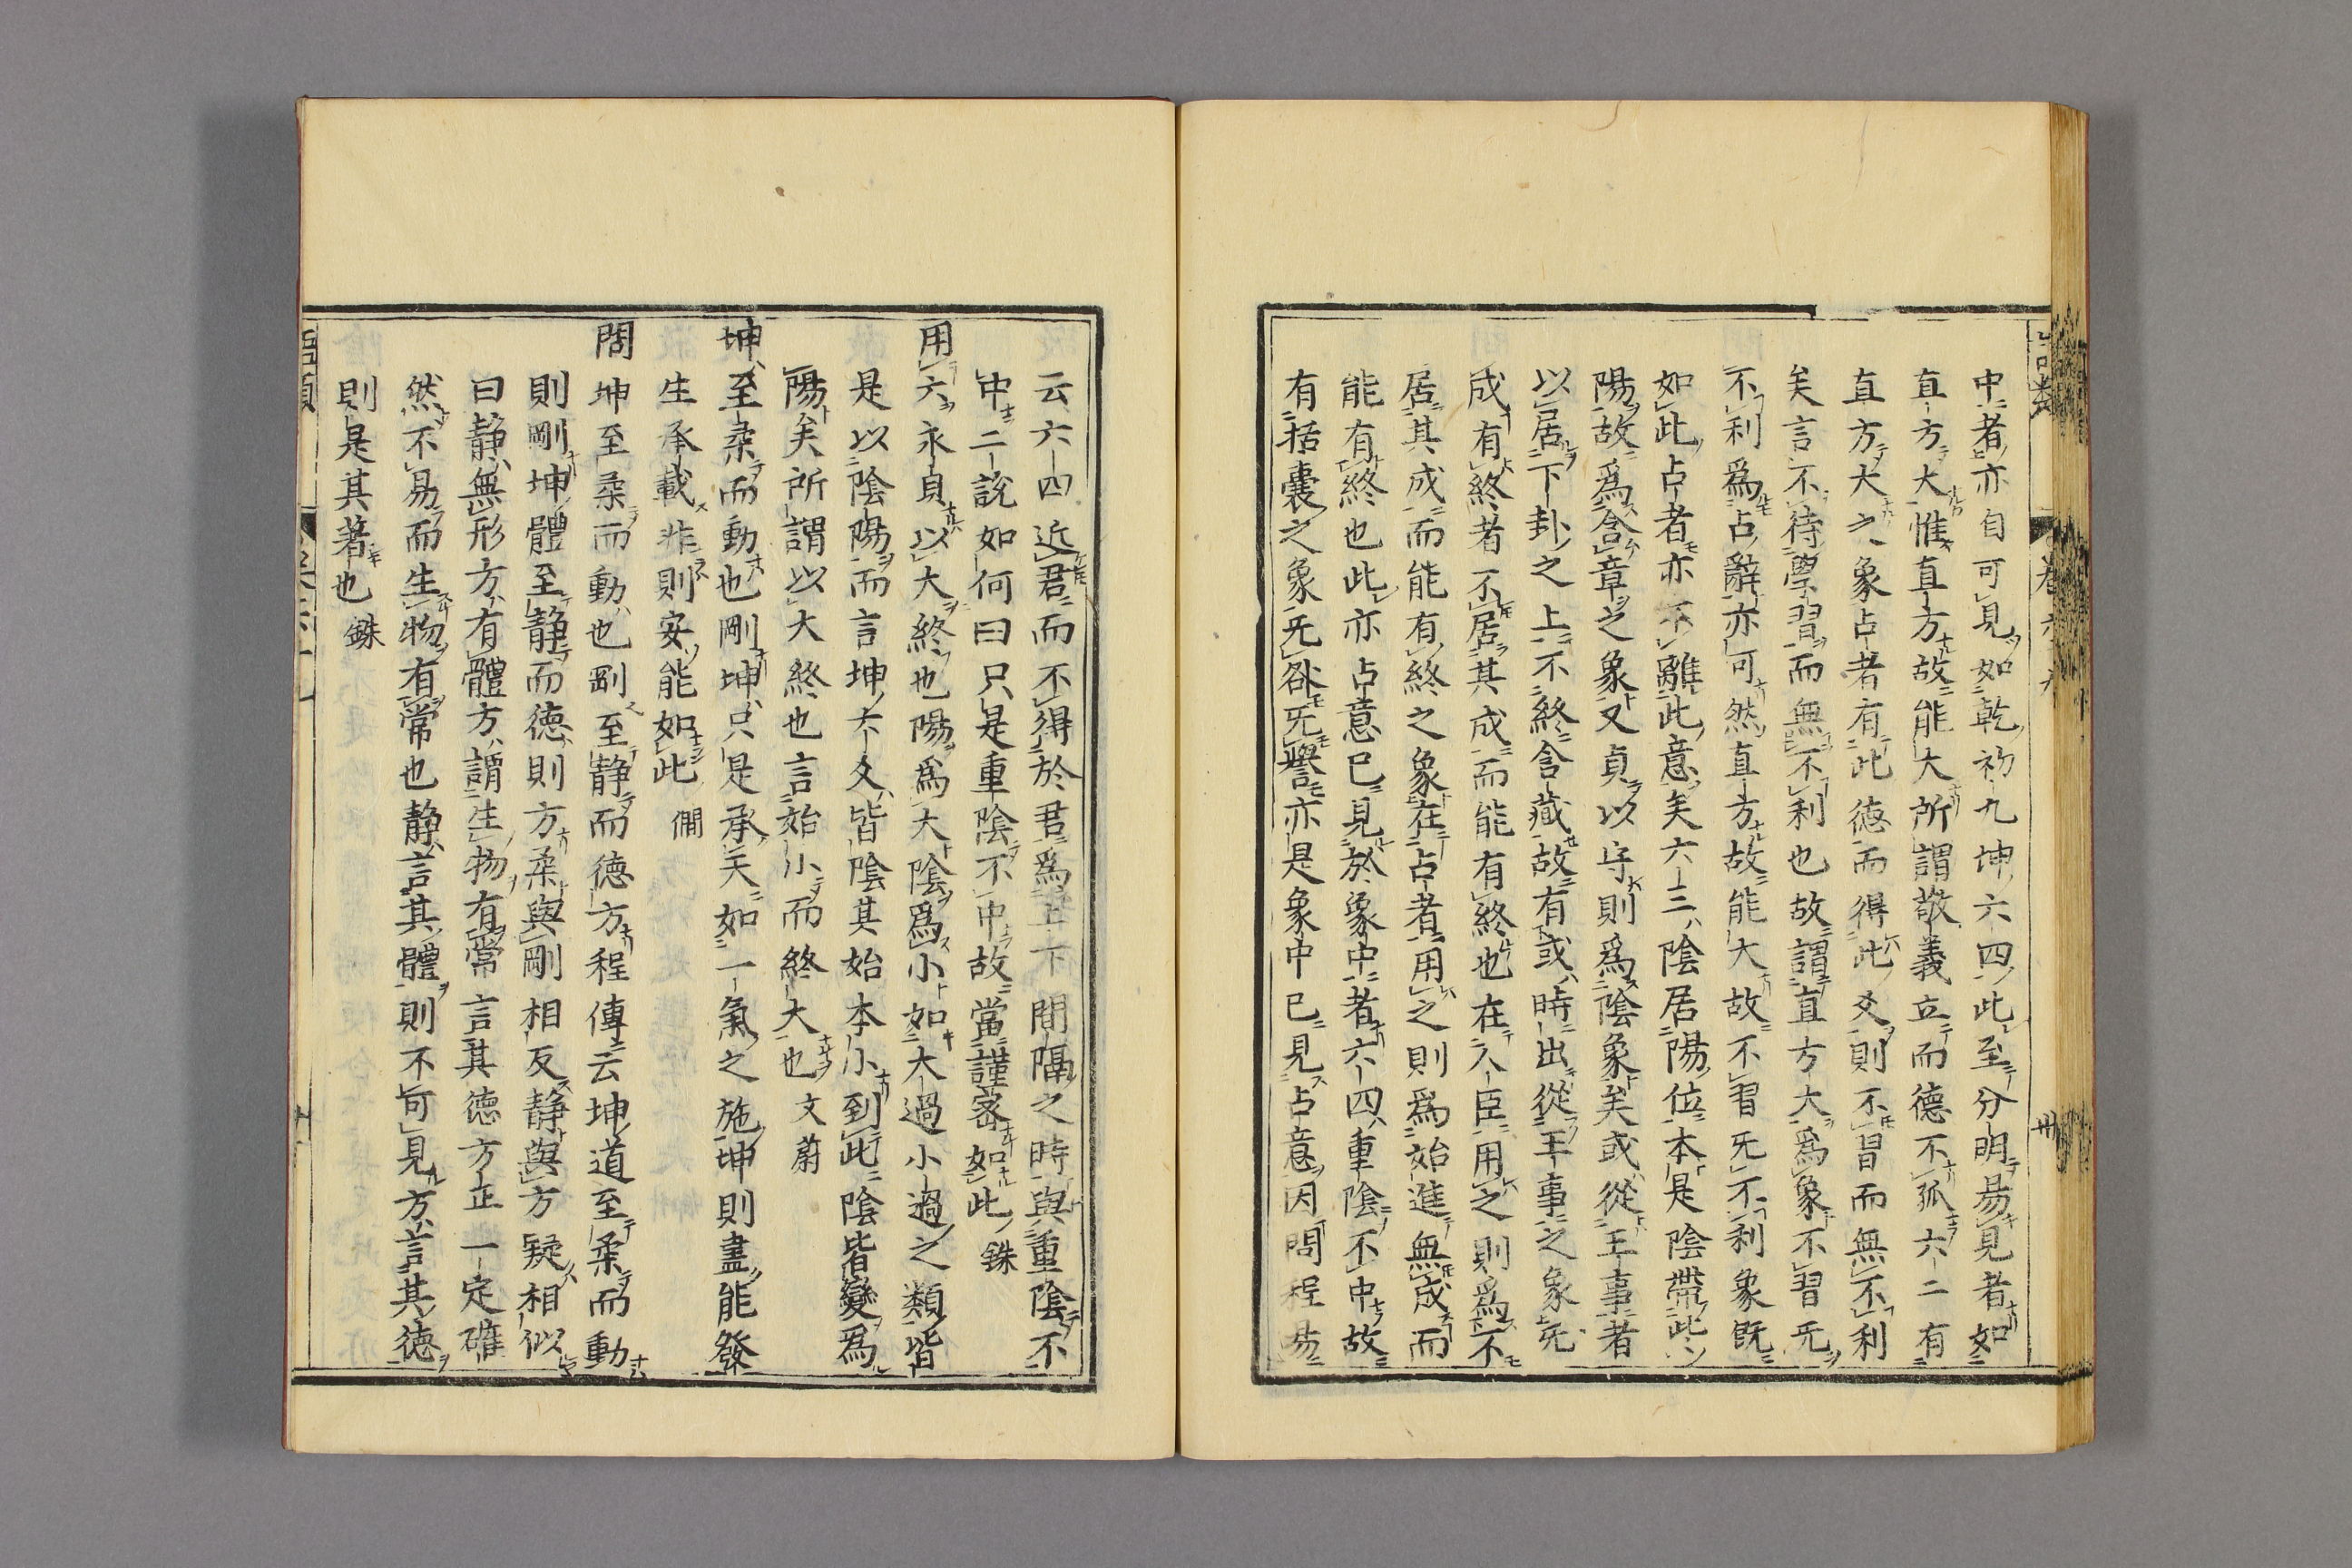 中者亦自可見如乾初九坤六四此至分明易見者如
直方大惟直方故能大所謂敬義立而德不孤六二有
直方大之象占者有此德而得此爻則不習而無不利
矣言不待學習而無不利也故謂直方大為象不習无
不利為占辭亦可然直方故能大故不習无不利象既
如此占者亦不離此意矣六三陰居陽位本是陰帶此
陽故為含章之象又貞以守則為陰象矣或從王事者
以居下卦之上不終含藏故有或時出從王事之象无
成有終者不居其成而能有終也在人臣用之則為不
居其成而能有終之象在占者用之則為始進無成而
能有終也此亦占意已見於象中者六四重陰不中故
有括囊之象无咎无譽亦是象中已見占意因問程易
云六四近君而不得於君為上下間隔之時與重陰不
中二說如何曰只是重陰不中故當謹密如此 銖
用六永貞以大終也陽為大陰為小如大過小過之類皆
是以陰陽而言坤六爻皆陰其始本小到此陰皆變為
陽矣所謂以大終也言始小而終大也 文蔚
坤至柔而動也剛坤只是承天如一氣之施坤則盡能發
生承載非則安能如此 僩
問坤至柔而動也剛至靜而德方程傳云坤道至柔而動
則剛坤體至靜而德則方柔與剛相反靜與方疑相似
曰靜無形方有體方謂生物有常言其德方正一定確
然不易而生物有常也靜言其體則不可見方言其德
則是其著也 銖
語類
卷六十九
卅